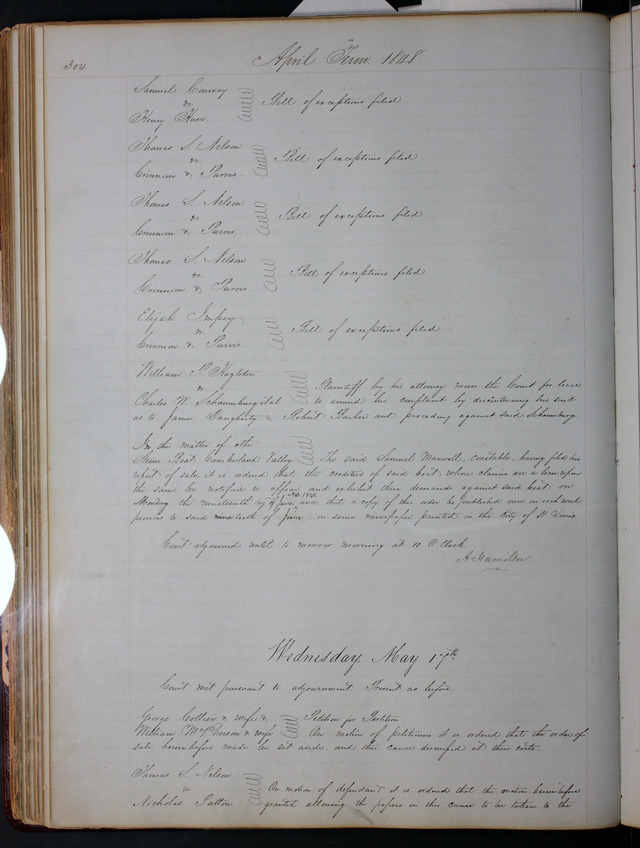 304
April Term 1848
Samuel Conway
vs.
Henry
Bill of exceptions filed
Thomas S. Nelson
vs
& Purvis
Bill of exceptions filed
Thomas S. Nelson
vs
& Purvis
Bill of exceptions filed
Thomas S. Nelson
vs
& Purvis
Bill of exceptions filed
Elijah Impey
vs
& Purvis
Bill of exceptions filed
William P. Hazleton
vs
Charles W. Schaumburg et al
Plaintiff by his attorney moves the Court for leave
to amend his complaint by discontinuing his suit
as to James Daugherty & Robert Barker and proceeding against said Schaumburg
In the matter of the
Steam Boat Cumberland Valley
The said Samuel Maxwell, constable, having filed his
report of sale, it is ordered that the creditors of said boat whose claims are a lien upon
the same be notified to appear and exhibit their demands against said boat on
Monday the nineteenth day of June AD 1848 and that a copy of this order be published once in each week
previous to said nineteenth of June in some newspaper printed in the City of St Louis
Court adjourned until to morrow morning at 10 O Clock
A Hamilton
Wednesday, May 17th
Court met pursuant to adjournment. Present as before.
George Collier & wife &
William McPherson & wife
Petition for Partition
On motion of petitioners it is ordered that the order of
sale hereinbefore made be set aside, and this cause dismissed at their costs.
Thomas S. Nelson
vs
Nicholas Patton
On motion of defendant it is ordered that the motion hereinbefore
granted allowing the papers in this cause to be taken to the